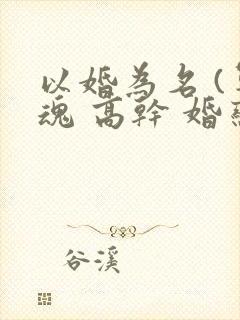 以婚為名(
魂 高幹 婚
谷溪